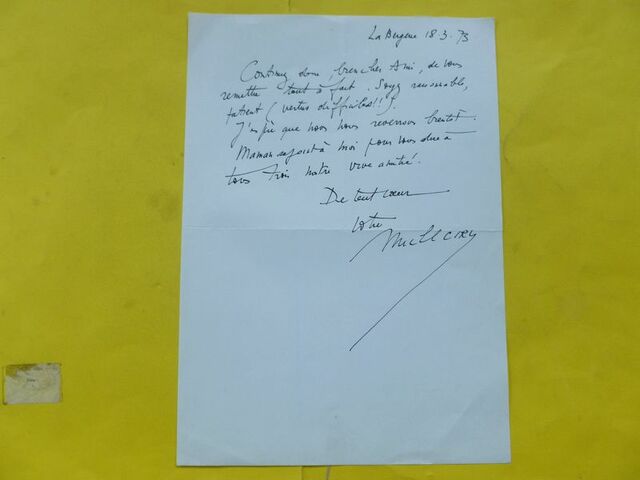 La Bergerie 18.3.73
Continuez donc, bien cher Ami, de vous
remettre tout à fait. Soyez raisonnable,
patient (vertus difficiles!!).
J'espère que nous nous reverrons bientôt.
Maman se joint à moi pour vous dire à
tous trois notre vive amitié.
De tout cœur
Votre